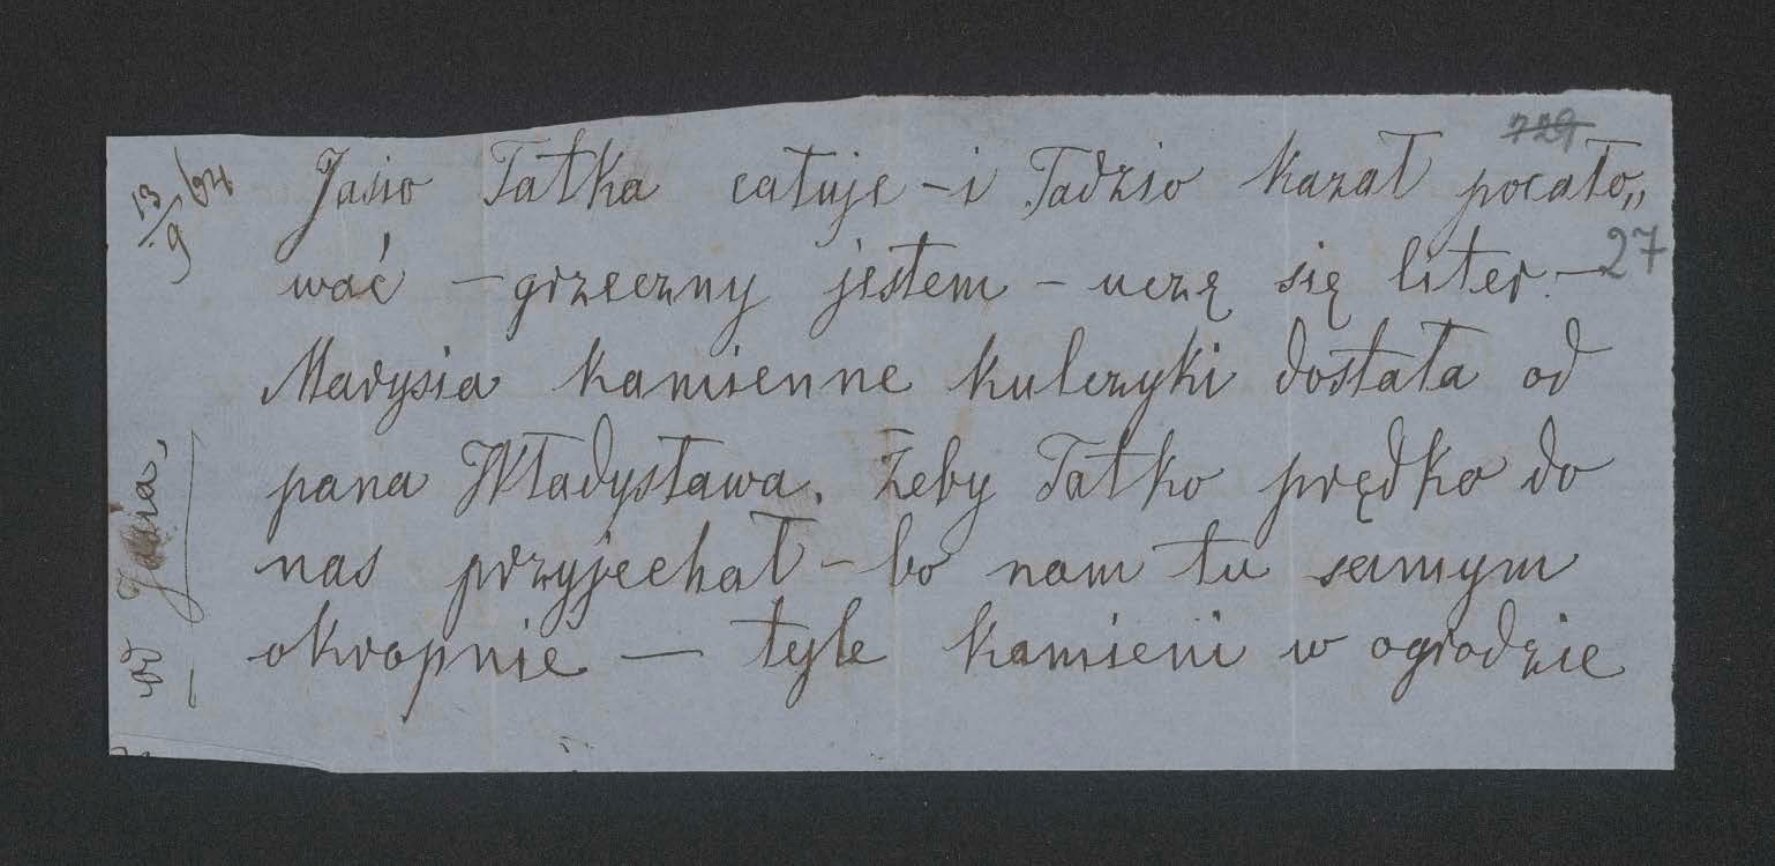 729
Jasio Tatka całuje – i Tadzio kazał pocało„
wać – grzeczny jestem – uczę się liter. –
27
Marysia kamienne kulczyki dostała od
pana Władysława. Żeby Tatko prędko do
nas przyjechał – bo nam tu samym
okropnie — tyle kamieni w ogrodzie
13/9
Jasia,